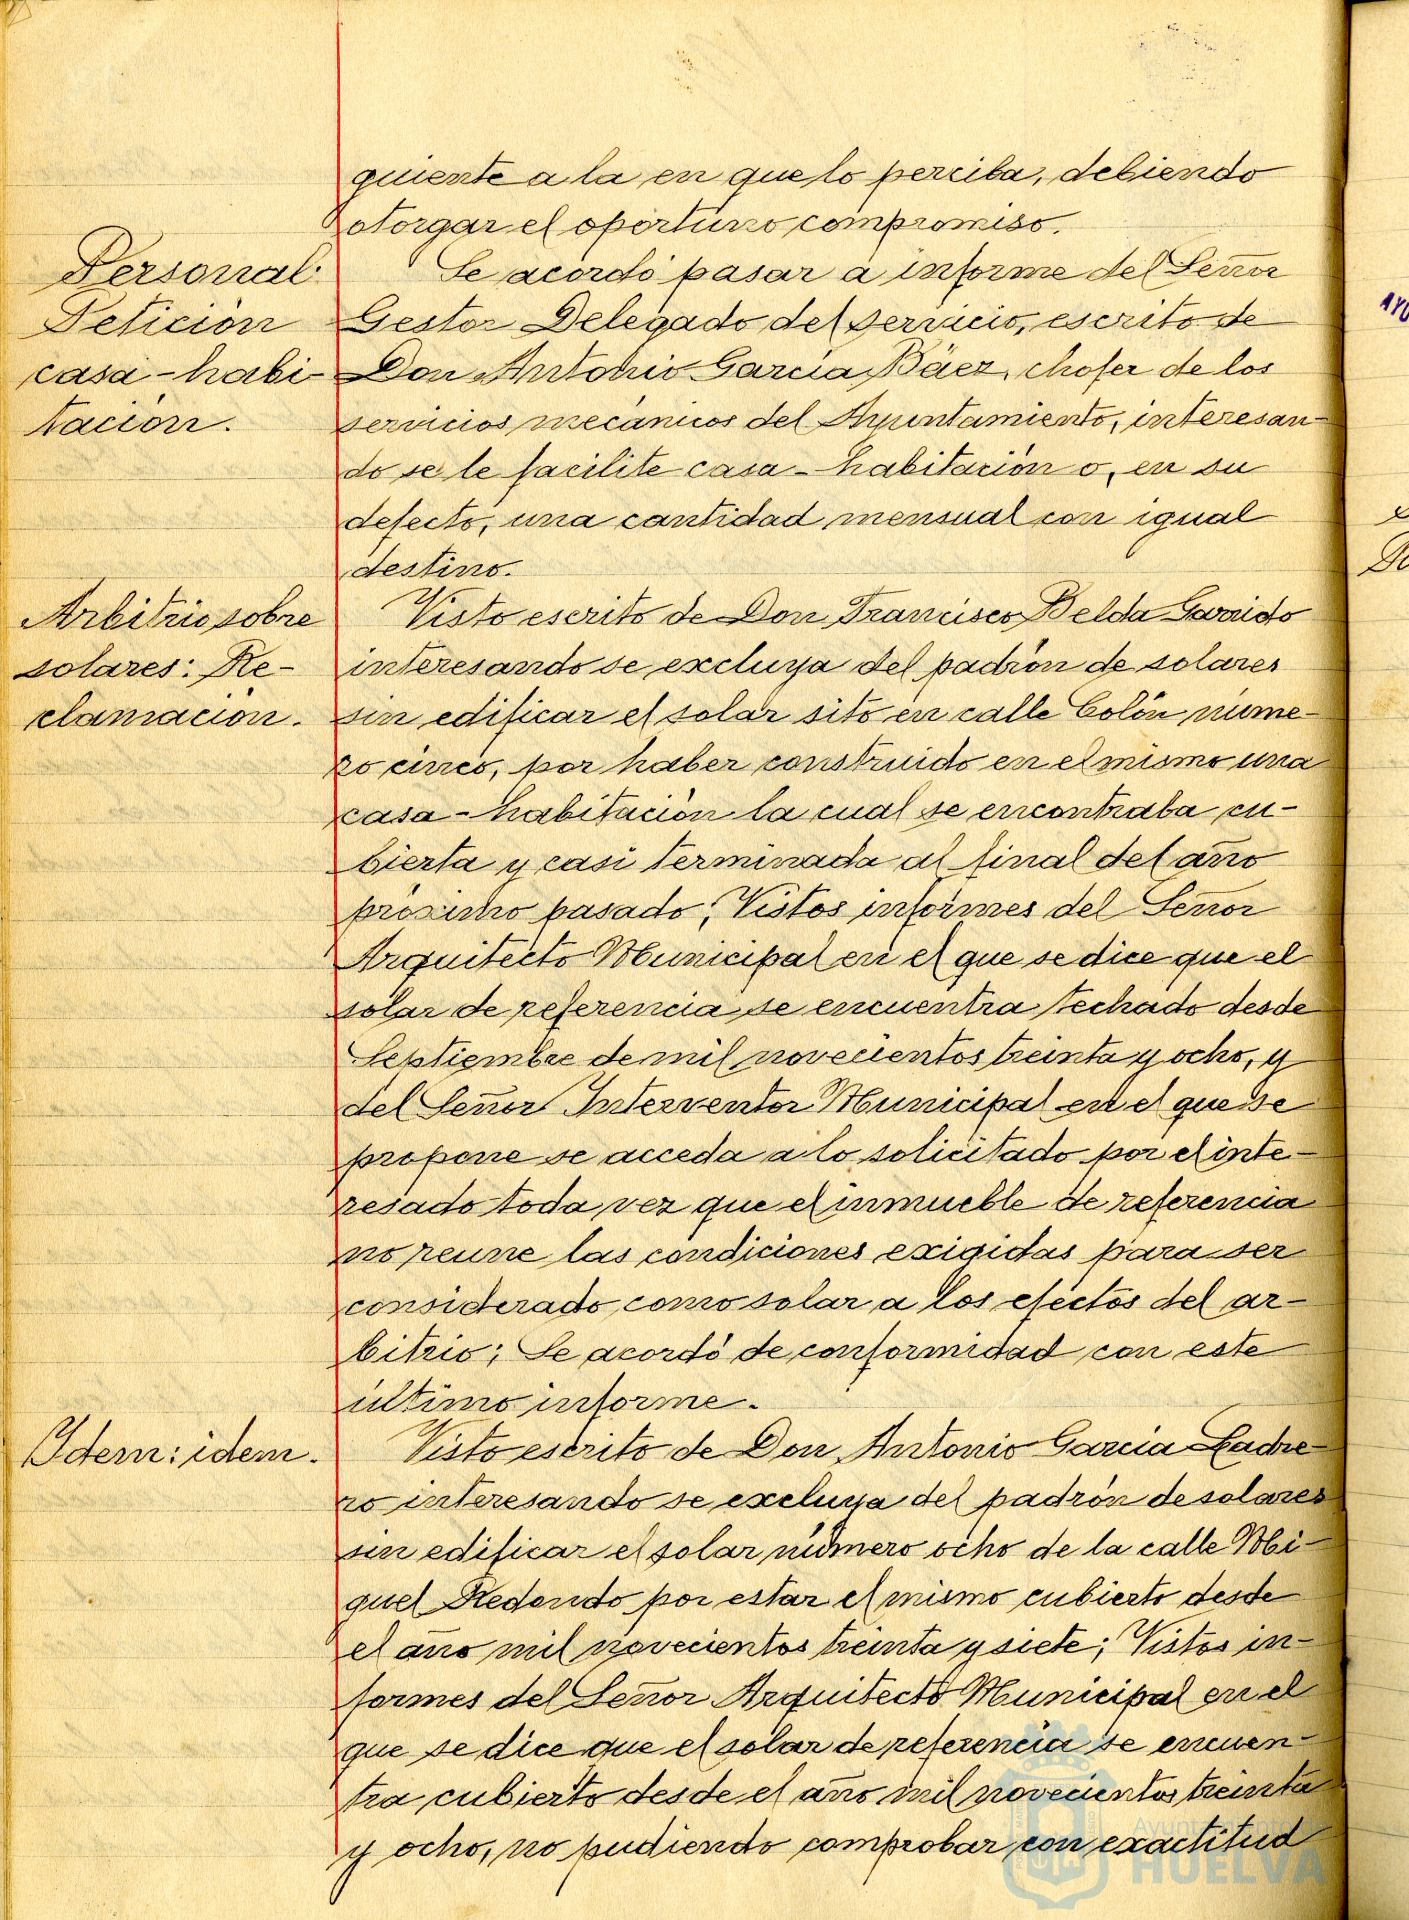 guiente a la en que lo perciba, debiendo
otorgar el oportuno compromiso.
Personal:
Petición
casa-habi-
tación.
Se acordó pasar a informe del Señor
Gestor Delegado del servicio, escrito de
Don Antonio García Báez, chofer de los
servicios mecánicos del Ayuntamiento, interesan-
do se le facilite casa-habitación o, en su
defecto, una cantidad mensual con igual
destino.
Arbitrio sobre
solares: Re-
clamación.
Visto escrito de Don Francisco Belda Garrido
interesando se excluya del padrón de solares
sin edificar el solar sito en calle Colón núme-
ro cinco, por haber construido en el mismo una
casa-habitación la cual se encontraba cu-
bierta y casi terminada al final del año
próximo pasado; Vistos informes del Señor
Arquitecto Municipal en el que se dice que el
solar de referencia se encuentra techado desde
Septiembre de mil novecientos treinta y ocho, y
del Señor Interventor Municipal en el que se
propone se acceda a lo solicitado por el inte-
resado toda vez que el inmueble de referencia
no reune las condiciones exigidas para ser
considerado como solar a los efectos del ar-
bitrio; Se acordó de conformidad con este
último informe.
Idem: idem.
Visto escrito de Don Antonio García Ladre-
ro interesando se excluya del padrón de solares
sin edificar el solar número ocho de la calle Mi-
guel Redondo por estar el mismo cubierto desde
el año mil novecientos treinta y siete; Vistos in-
formes del Señor Arquitecto Municipal en el
que se dice que el solar de referencia se encuen-
tra cubierto desde el año mil novecientos treinta
y ocho, no pudiendo comprobar con exactitud
AYU
HUELVA